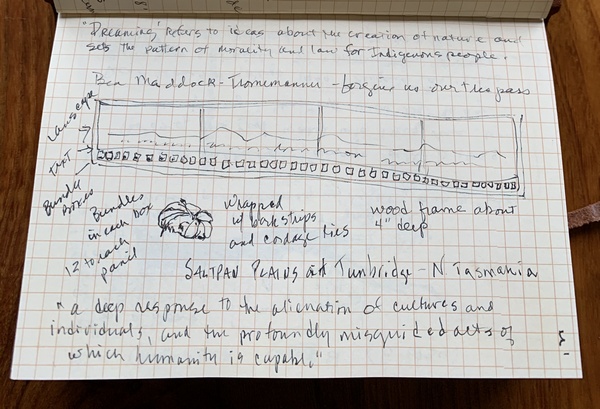 "Dreaming" refers to ideas about the creation of nature and
sets the pattern of morality and law for Indigenous people.
Ben Maddock - - forgive us our trespass
Landscape
Text
Bundle
Boxes
Bundles
in each box
12 to each
panel
wrapped
w/ bark strips
and cordage ties
wood frame about
4" deep
Saltpan Plains at Tunbridge - N Tasmania
"a deep response to the alienation of cultures and
individuals, and the profoundly misguided acts of
which humanity is capable."